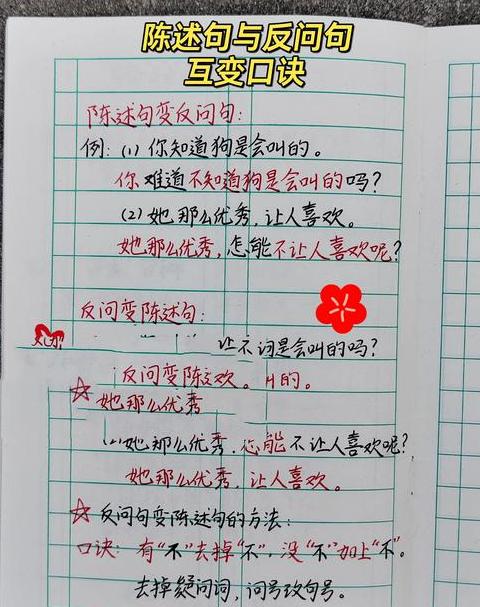 陈述句与反问句
互变口诀
陈述句变反问句:
例:(1)你知道狗是会叫的。
你难道不知道狗是会叫的吗?
(2)她那么优秀,让人喜欢。
她那么优秀,怎能不让人喜欢呢?
反问变陈述句:
是会叫的吗?
反问变陈 欢。 的。
☆她那么优秀
她那么优秀,怎能不让人喜欢呢?
她那么优秀,让人喜欢。
☆反问句变陈述句的方法:
口诀:有“不”去掉“不”,没“不”加上“不”。
去掉疑问词,问号改句号。